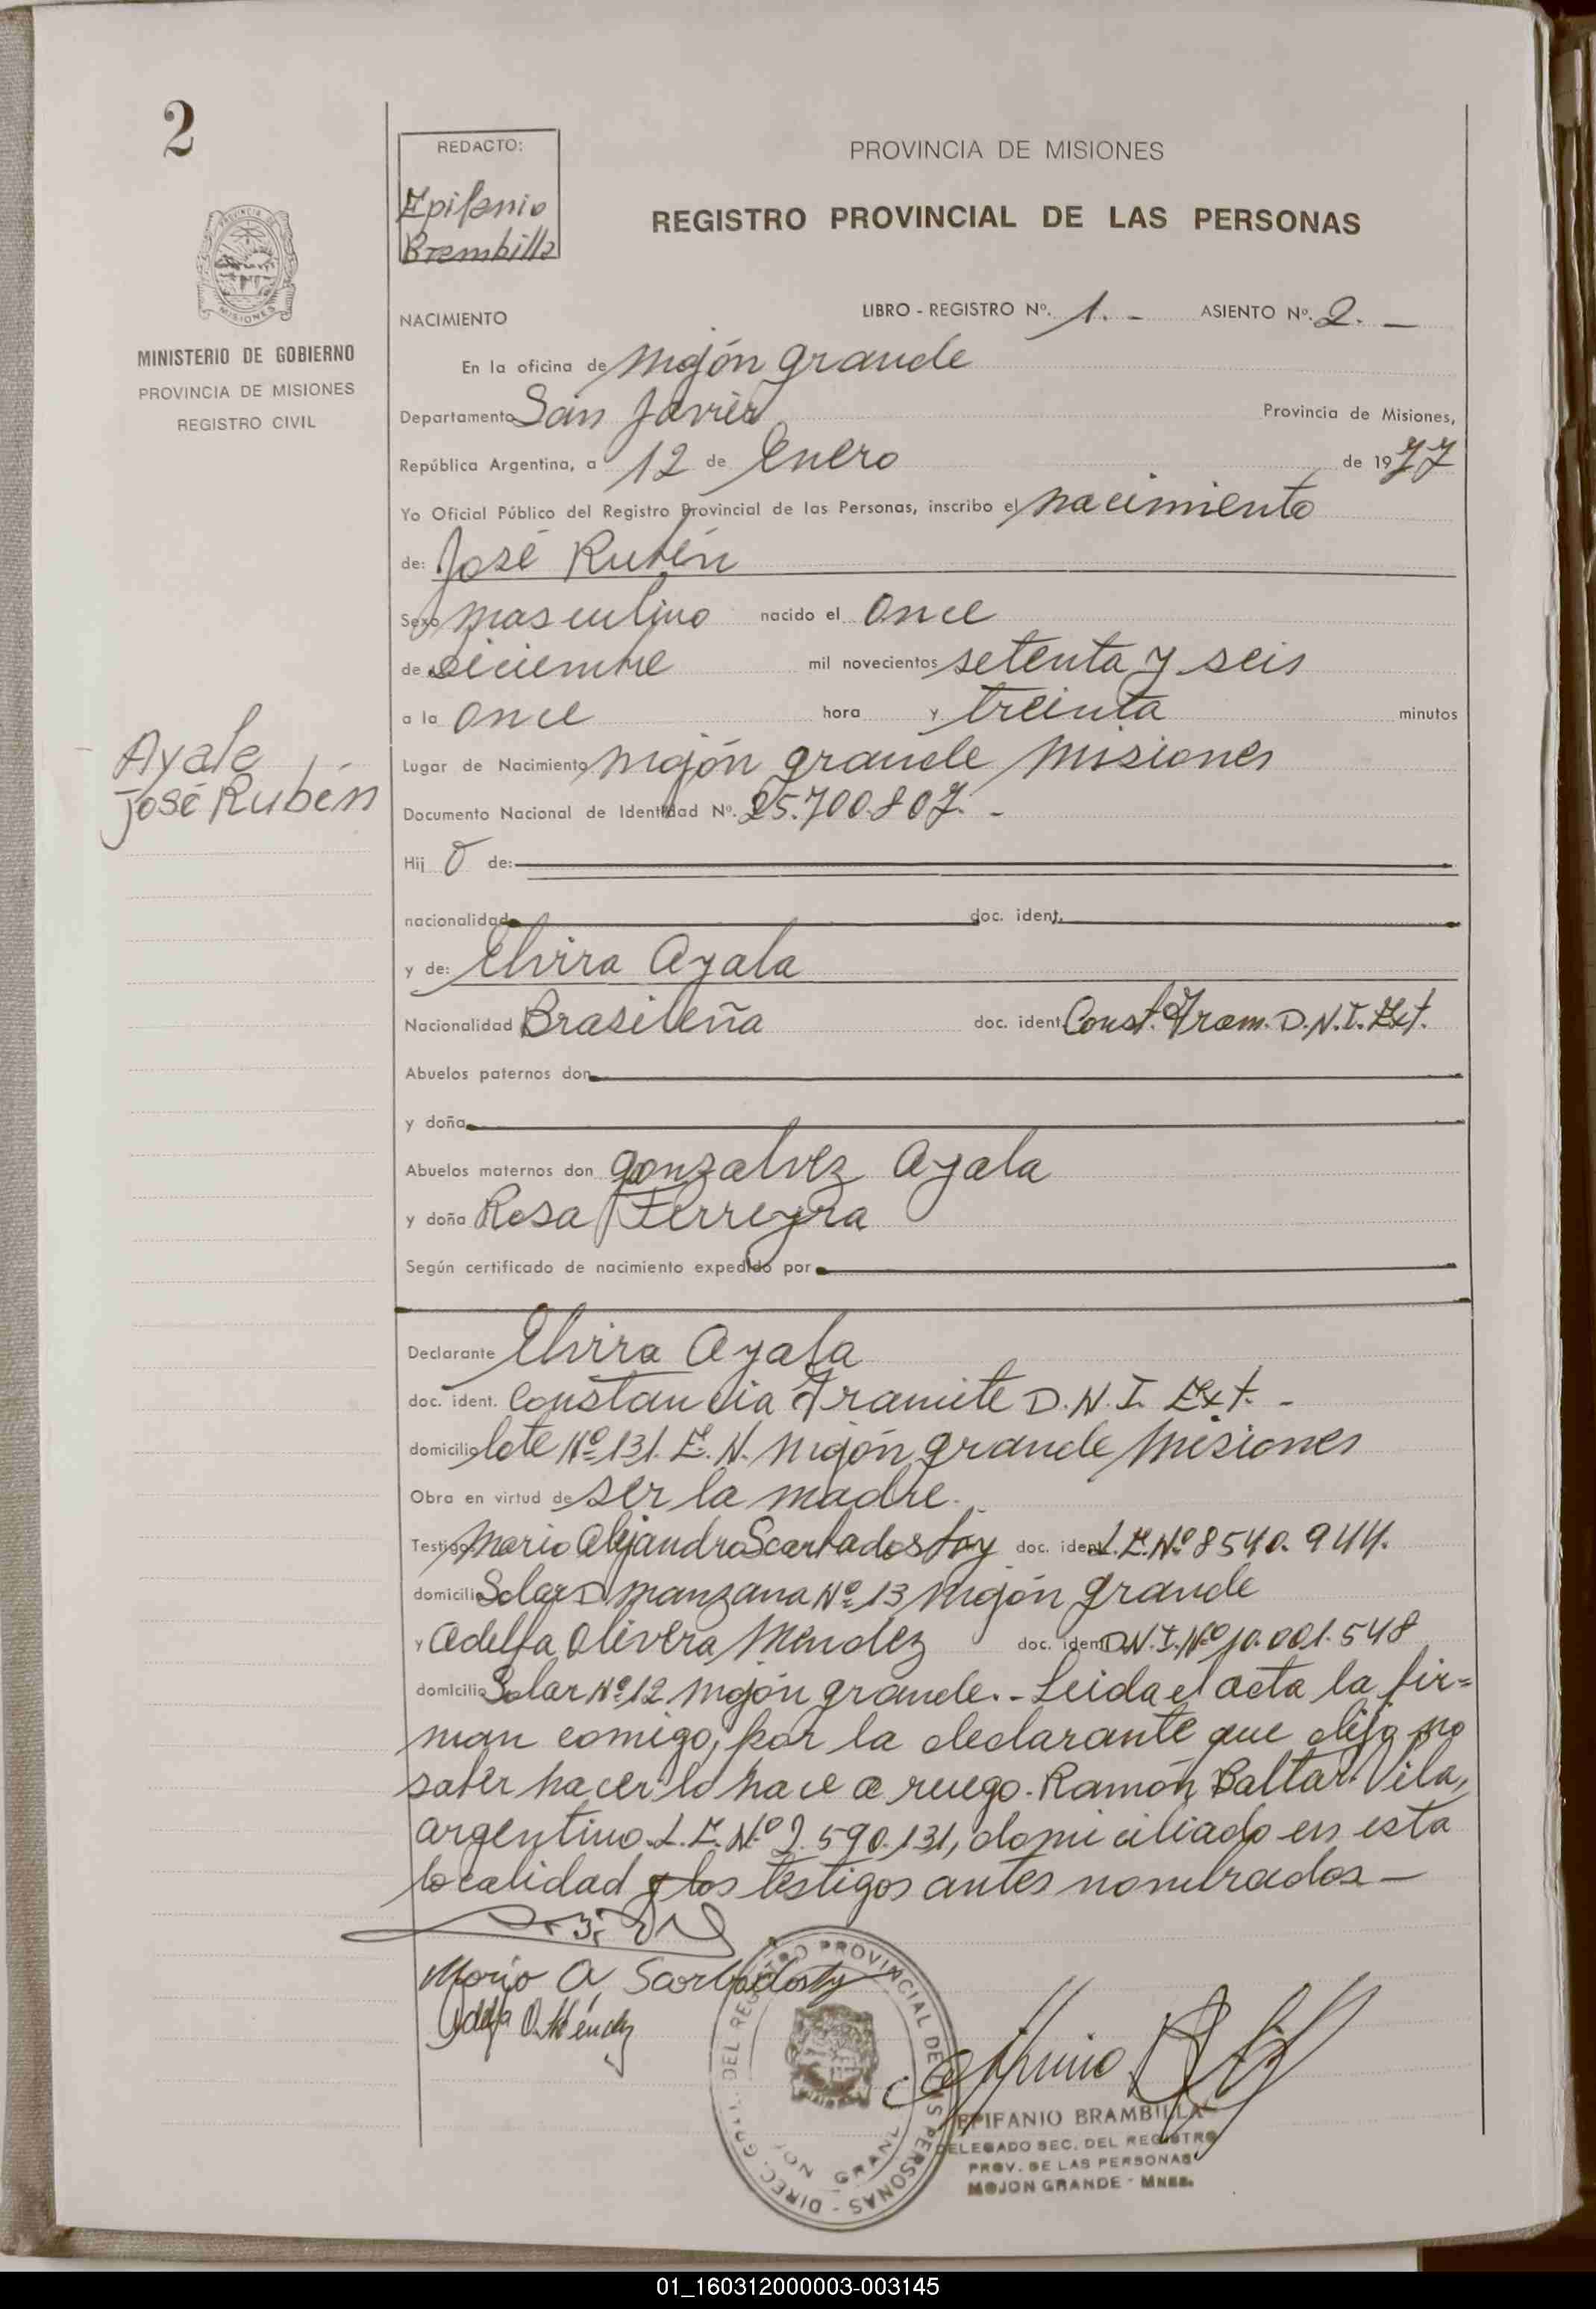 2
REDACTO:
Epifanio
Brambilla
PROVINCIA DE MISIONES
REGISTRO PROVINCIAL DE LAS PERSONAS
PROVINCIA DE
MISIONES
MINISTERIO DE GOBIERNO
PROVINCIA DE MISIONES
REGISTRO CIVIL
NACIMIENTO
LIBRO - REGISTRO Nº. 1. - ASIENTO Nº. 2. -
En la oficina de Mojón grande
Departamento San Javier Provincia de Misiones,
República Argentina, a 12 de Enero de 1977
Yo Oficial Público del Registro Provincial de las Personas, inscribo el nacimiento
de: José Rubén
Sexo masculino nacido el once
de Diciembre mil novecientos setenta y seis
a la once hora y treinta minutos
Ayala
José Rubén
Lugar de Nacimiento Mojón grande Misiones
Documento Nacional de Identidad Nº. 25.700.807. -
Hij o de:
nacionalidad doc. ident.
y de: Elvira Ayala
Nacionalidad Brasileña doc. ident. Const. Tram. D.N.I. Ext.
Abuelos paternos don
y doña
Abuelos maternos don gonzalvez Ayala
y doña Rosa Ferreyra
Según certificado de nacimiento expedido por
Declarante Elvira Ayala
doc. ident. Constancia Tramite D.N.I. Ext. -
domicilio lote Nº 131. E. N. Mojón grande Misiones
Obra en virtud de ser la madre.
Testigos Mario Alejandro doc. ident. L.E. Nº 8540.944.
domicilio Solar D manzana Nº 13 Mojón grande
y Adelfa Olivera Mendez doc. ident. D.N.I. Nº 10.001.548
domicilio Solar Nº 12 Mojón grande. - Leida el acta la fir=
man comigo, por la declarante que dijo no
saber hacerlo hace a ruego. Ramón Baltar Vila,
argentino. L.E. Nº 590.131, domiciliado en esta
localidad y los testigos antes nombrados -
Mario A. Sarbadosty
Adelfa O. Méndez
DIREC. GRAL. DEL REGISTRO PROVINCIAL DE LAS PERSONAS -
JON GRAN
EPIFANIO BRAMBILLA
DELEGADO SEC. DEL REGISTRO
PROV. DE LAS PERSONAS
MOJON GRANDE - MNES.
01_160312000003-003145